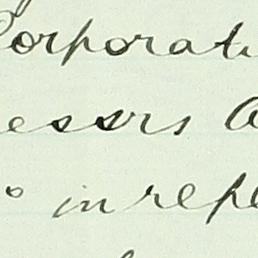 Corporati
essrs
in repl